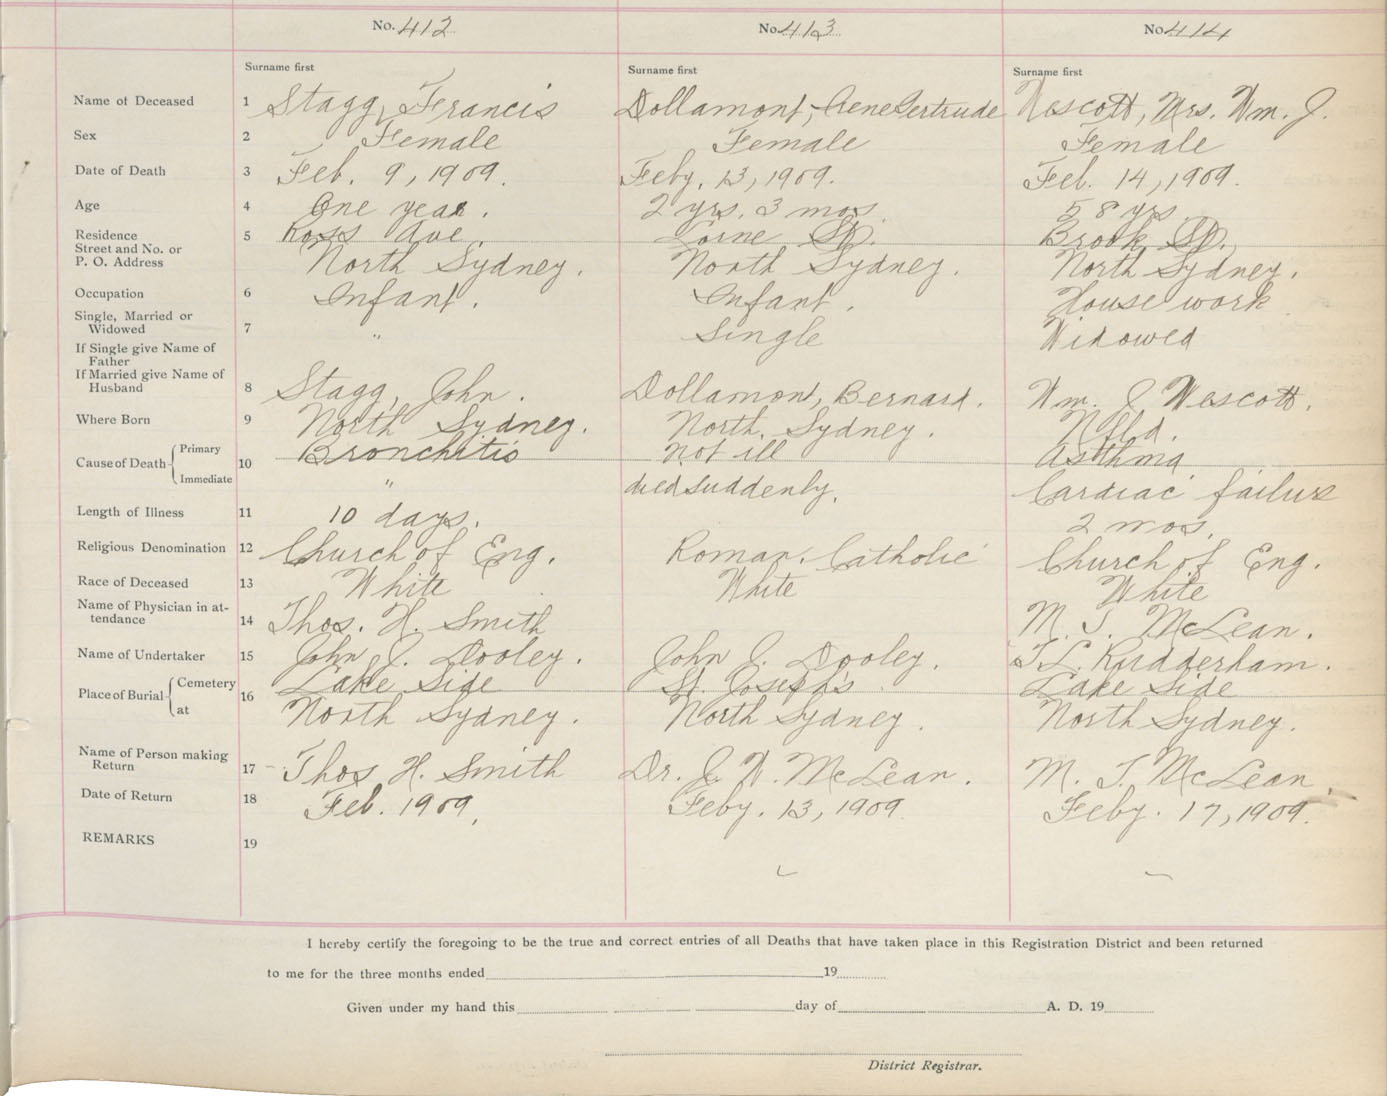 No. 412 No. 413 No. 414
Surname first Surname first Surname first
Name of Deceased 1 Stagg, Francis Dollamont, Irene Gertrude Wescott, Mrs. Wm. J.
Sex 2 Female Female Female
Date of Death 3 Feb. 9, 1909. Feby. 13, 1909. Feb. 14, 1909.
Age 4 One year. 2 yrs. 3 mos. 58 yrs
Residence 5 Ross Ave. Lorne St. Brook St.
Street and No. or
P. O. Address North Sydney. North Sydney. North Sydney.
Occupation 6 Infant. Infant. House work
Single, Married or
Widowed 7 " Single Widowed
If Single give Name of
Father
If Married give Name of
Husband 8 Stagg, John. Dollamont, Bernard. Wm. J Wescott.
Where Born 9 North Sydney. North Sydney. Nfld.
Cause of Death Primary 10 Bronchitis not ill Asthma
Immediate " died suddenly. Cardiac failure
Length of Illness 11 10 days. 2 mos.
Religious Denomination 12 Church of Eng. Roman Catholic Church of Eng.
Race of Deceased 13 White White White
Name of Physician in at-
tendance 14 Thos. H. Smith M. T. McLean.
Name of Undertaker 15 John J. Dooley. John J. Dooley. T. L. Rudderham.
Place of Burial Cemetery 16 Lake Side St. Joseph's Lake Side
at North Sydney. North Sydney. North Sydney.
Name of Person making
Return 17 Thos H. Smith Dr. J. W. McLean. M. T. McLean.
Date of Return 18 Feb. 1909. Feby. 13, 1909. Feby. 17, 1909.
REMARKS 19
I hereby certify the foregoing to be the true and correct entries of all Deaths that have taken place in this Registration District and been returned
to me for the three months ended 19
Given under my hand this day of A. D. 19
District Registrar.